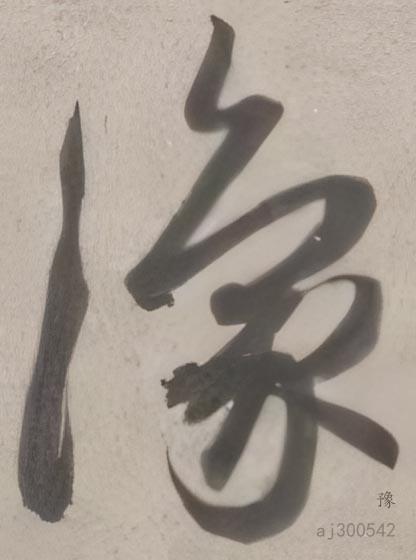 豫
豫
aj300542